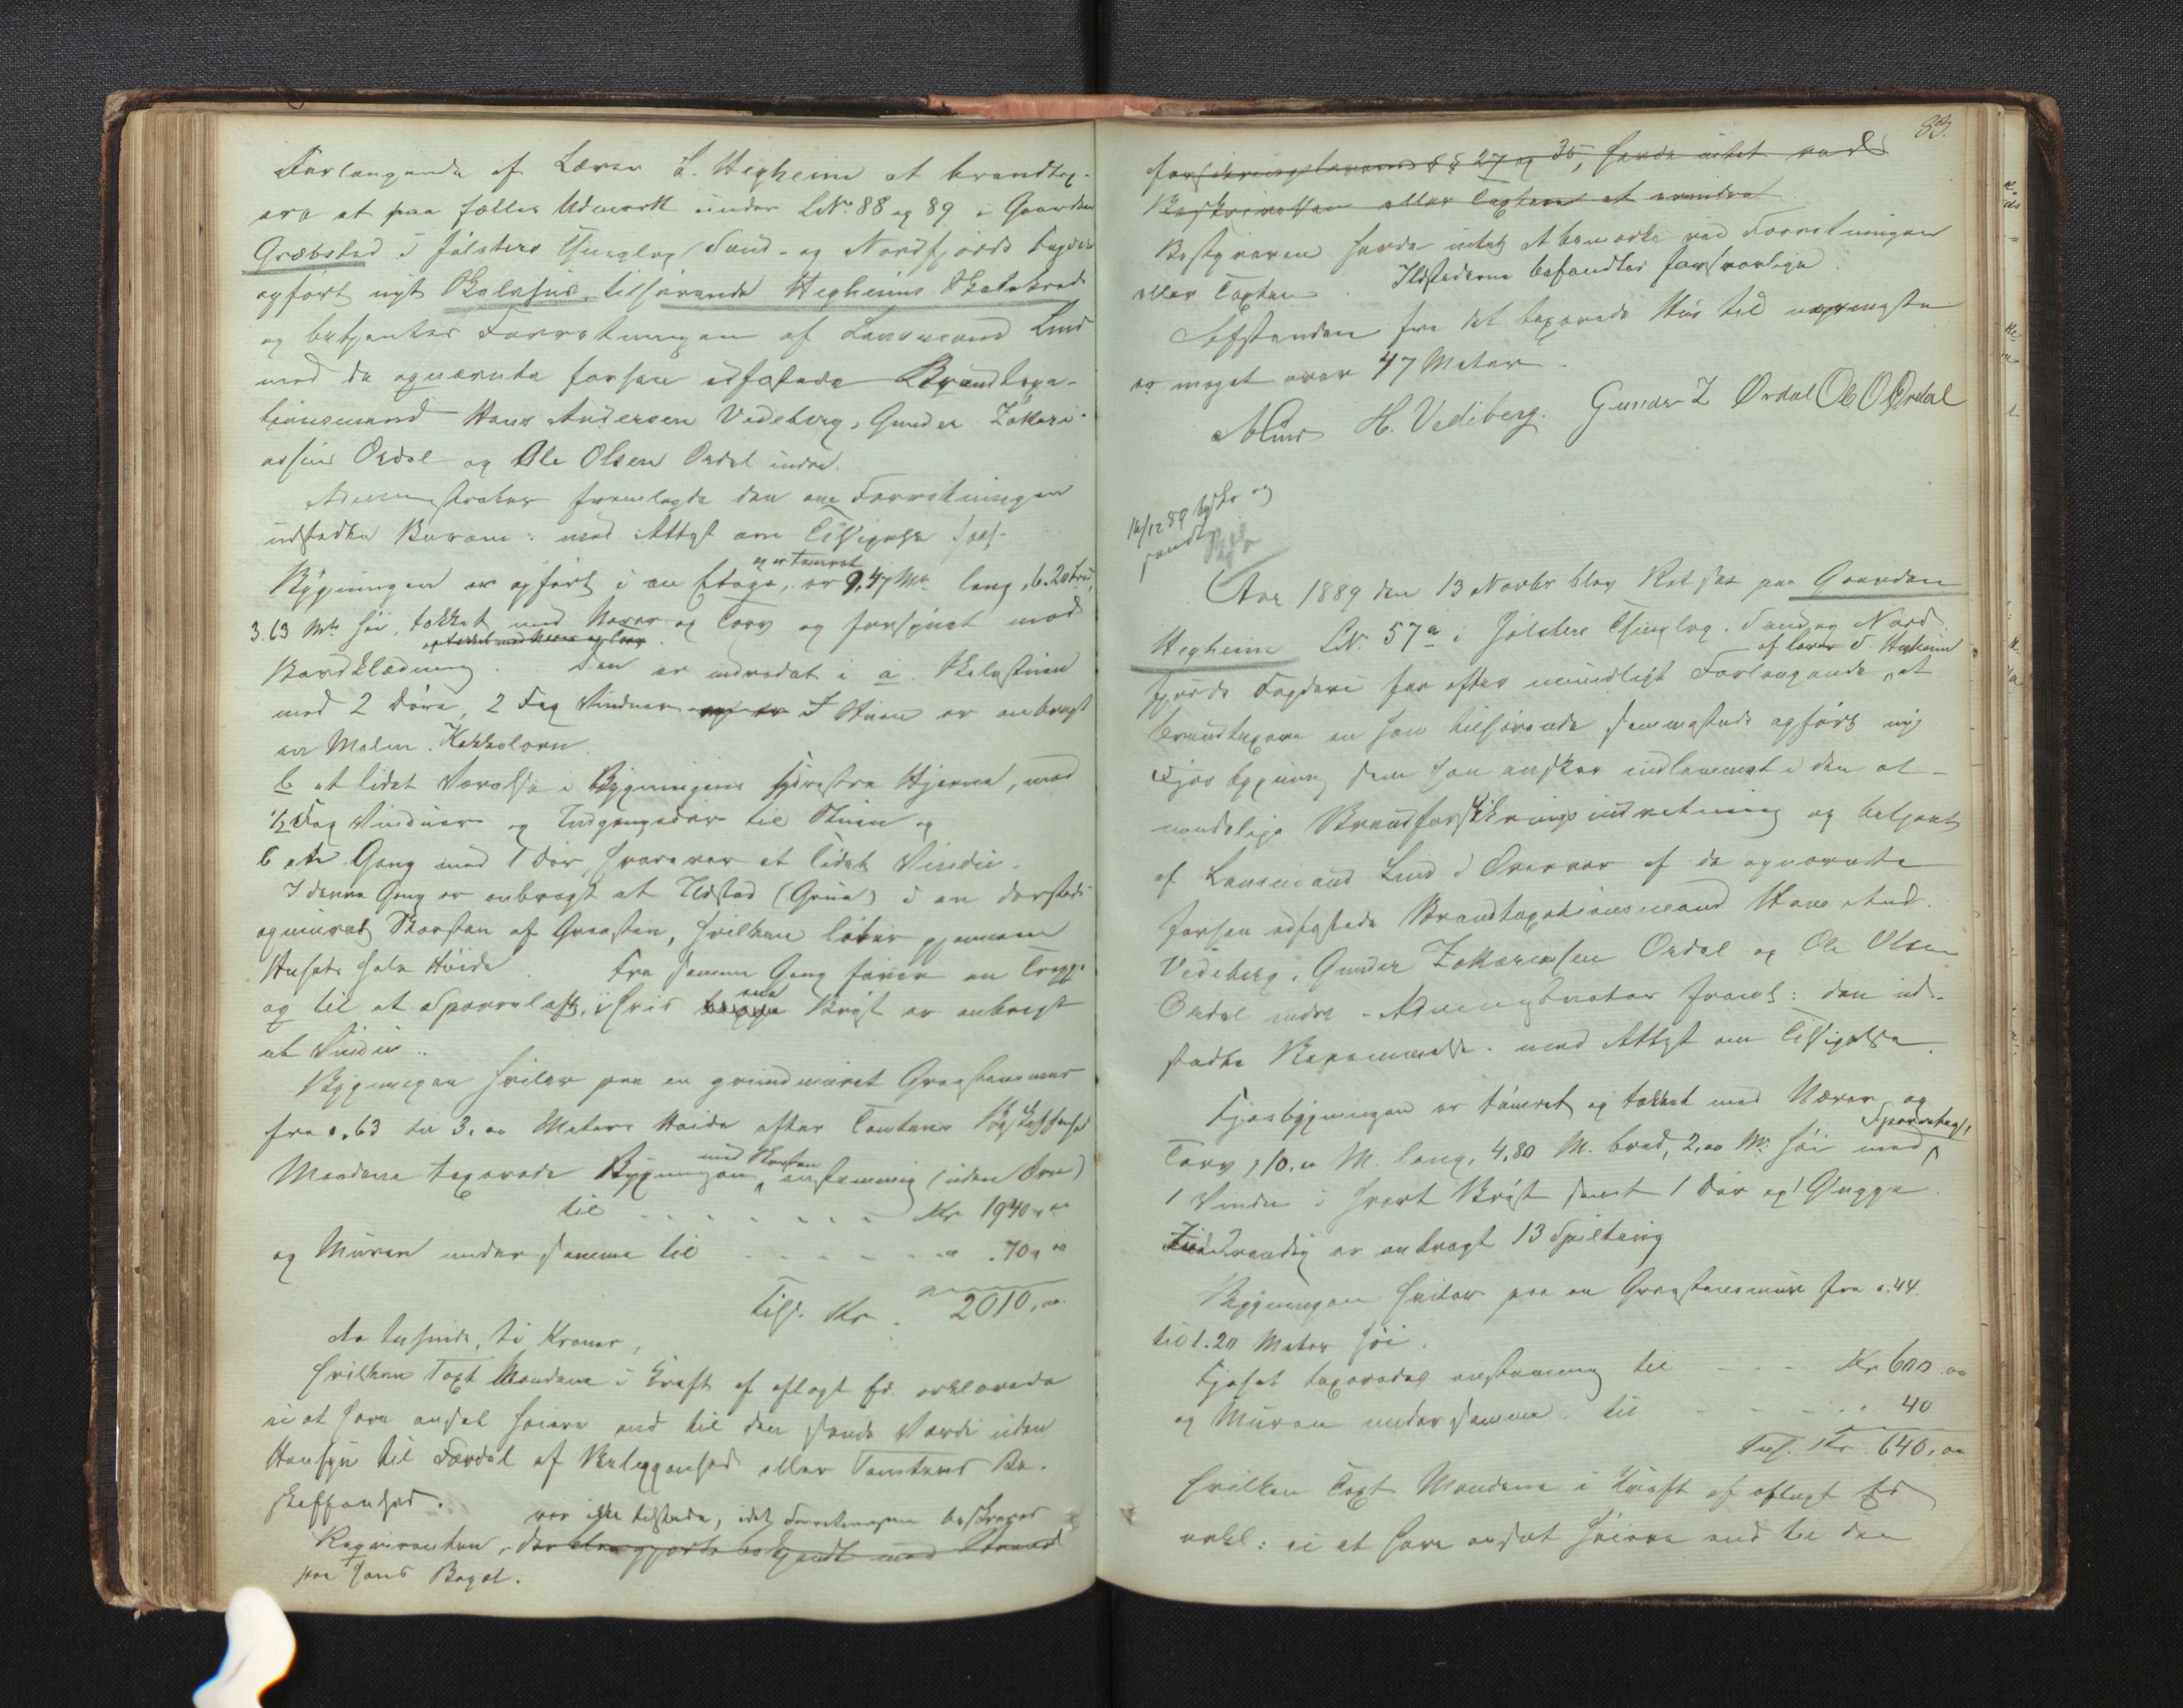 Forlangende af Lærer S. Hegheim at brandtax-
ere et paa fælles Udmark under LNr. 88 og 89 i Gaarden
Græbstad i Jølsters Thinglag Sønd- og Nordfjords Fogderi
opført nyt Skolehus tilhørende Hegheims Skolekreds
og betjentes Forretningen af Lensmand Lind
med de opnævnte forhen edfæstede Brandtaxa-
tionsmænd Hans Andersen Vedeberg, Gunder Zakari-
assen Ordal og Ole Olsen Ordal indre.
Administrator fremlagde den om Forretningen
udstedte Beram: med Attest om Tilsigelse
og er tømret
Bygningen er opført i en Etage, er 9,47 Mtr lang, 6.20 bred,
3.63 Mtr høi, tækket med Næver og Torv og forsynet med
og tækket med Næver og Torv
Bordklædning. Den er indredet i a. Skolestuen
med 2 Døre, 2 Fag Vinduer og er I Stuen er anbragt
en Malm. Kakkelovn.
b et lidet Værelse i Bygningens Hjørne, med
1/2 Fag Vinduer og Indgangsdør til Stuen og
c en Gang med 1 Dør, hvorover et lidet Vindu.
I denne Gang er anbragt et Ildsted (Grue) i en dersteds
opmuret Skorsten af Graasten, hvilken løber gjennem
Husets hele Høide. Fra samme Gang fører en Trappe
op til et Sperreloft, i hvis begge Bryst er anbragt
et Vindu.
Bygningen hviler paa en grundmuret Graastensmur
fra 0.63 til 3.00 Meters Høide efter Tomtens Beskaffenhed
med Skorsten
Mændene taxerede Bygningen enstemmig (uden Ovn)
til . . . . . . . Kr 1940,00
og Muren under samme til - - - - - - - . 70,00
Tils. Kr. 2010,00
to tusinde, ti Kroner,
hvilken Taxt Mændene i Kraft af aflagt Ed. erklærede
ei at have ansat høiere end til den sande Værdi uden
Hensyn til Fordel af Beliggenhed eller Tomtens Be-
skaffenhed.
var ikke tilstede, idet Forretningen beskreves
Rekvirenten, der blev gjort bekjendt med Brand
paa hans Bopæl.
83.
forsikringslovens §§ 27 og 35, havde intet ved
Beskrivelsen eller Taxten at erindre
Bestyreren havde intet at bemærke ved Forretningen
eller Taxten. Ildstederne befandtes forsvarlige.
Afstanden fra det taxerede Hus til nærmeste
er meget over 47 Meter.
Lind H. Vedeberg. Gunder Z Ordal Ole O Ordal
16/12 89 og
sendt
Aar 1889 den 13 Novbr blev Ret sat paa Gaarden
Hegheim LNr. 57a i Jølsters Thinglag. Sønd og Nord-
af Lærer S. Hegheim
fjords Fogderi for efter mundtligt Forlangende at
brandtaxere en ham tilhørende sammesteds opført ny
Fjøsbygning som han ønsker indlemmet i den al-
mindelige Brandforsikringsindretning og betjent
af Lensmand Lind i Overvær af de opnævnte
forhen edfæstede Brandtaxationsmænd Hans And.
Vedeberg, Gunder Zakariassen Ordal og Ole Olsen
Ordal indre - Administrator freml: den ud-
stedte Berammelse. med Attest om Tilsigelse.
Fjøsbygningen er tømret og tækket med Næver og
Sperretag,
Torv, 10,00 M. lang, 4,80 M. bred, 2,00 Mr. høi med
1 Vindu i hvert Bryst samt 1 Dør og 1 Glugge.
Indvendig er anbragt 13 Spiltaug
Bygningen hviler paa en Graastensmur fra 0.44.
til 1.20 Meter høi.
Fjøset taxeredes enstemmig til - - - Kr 600.00
og Muren under samme. til - - - . . 40
Tils. Kr. 640,00
hvilken Taxt Mændene i Kraft af aflagt Ed
erkl: ei at have ansat høiere end til den